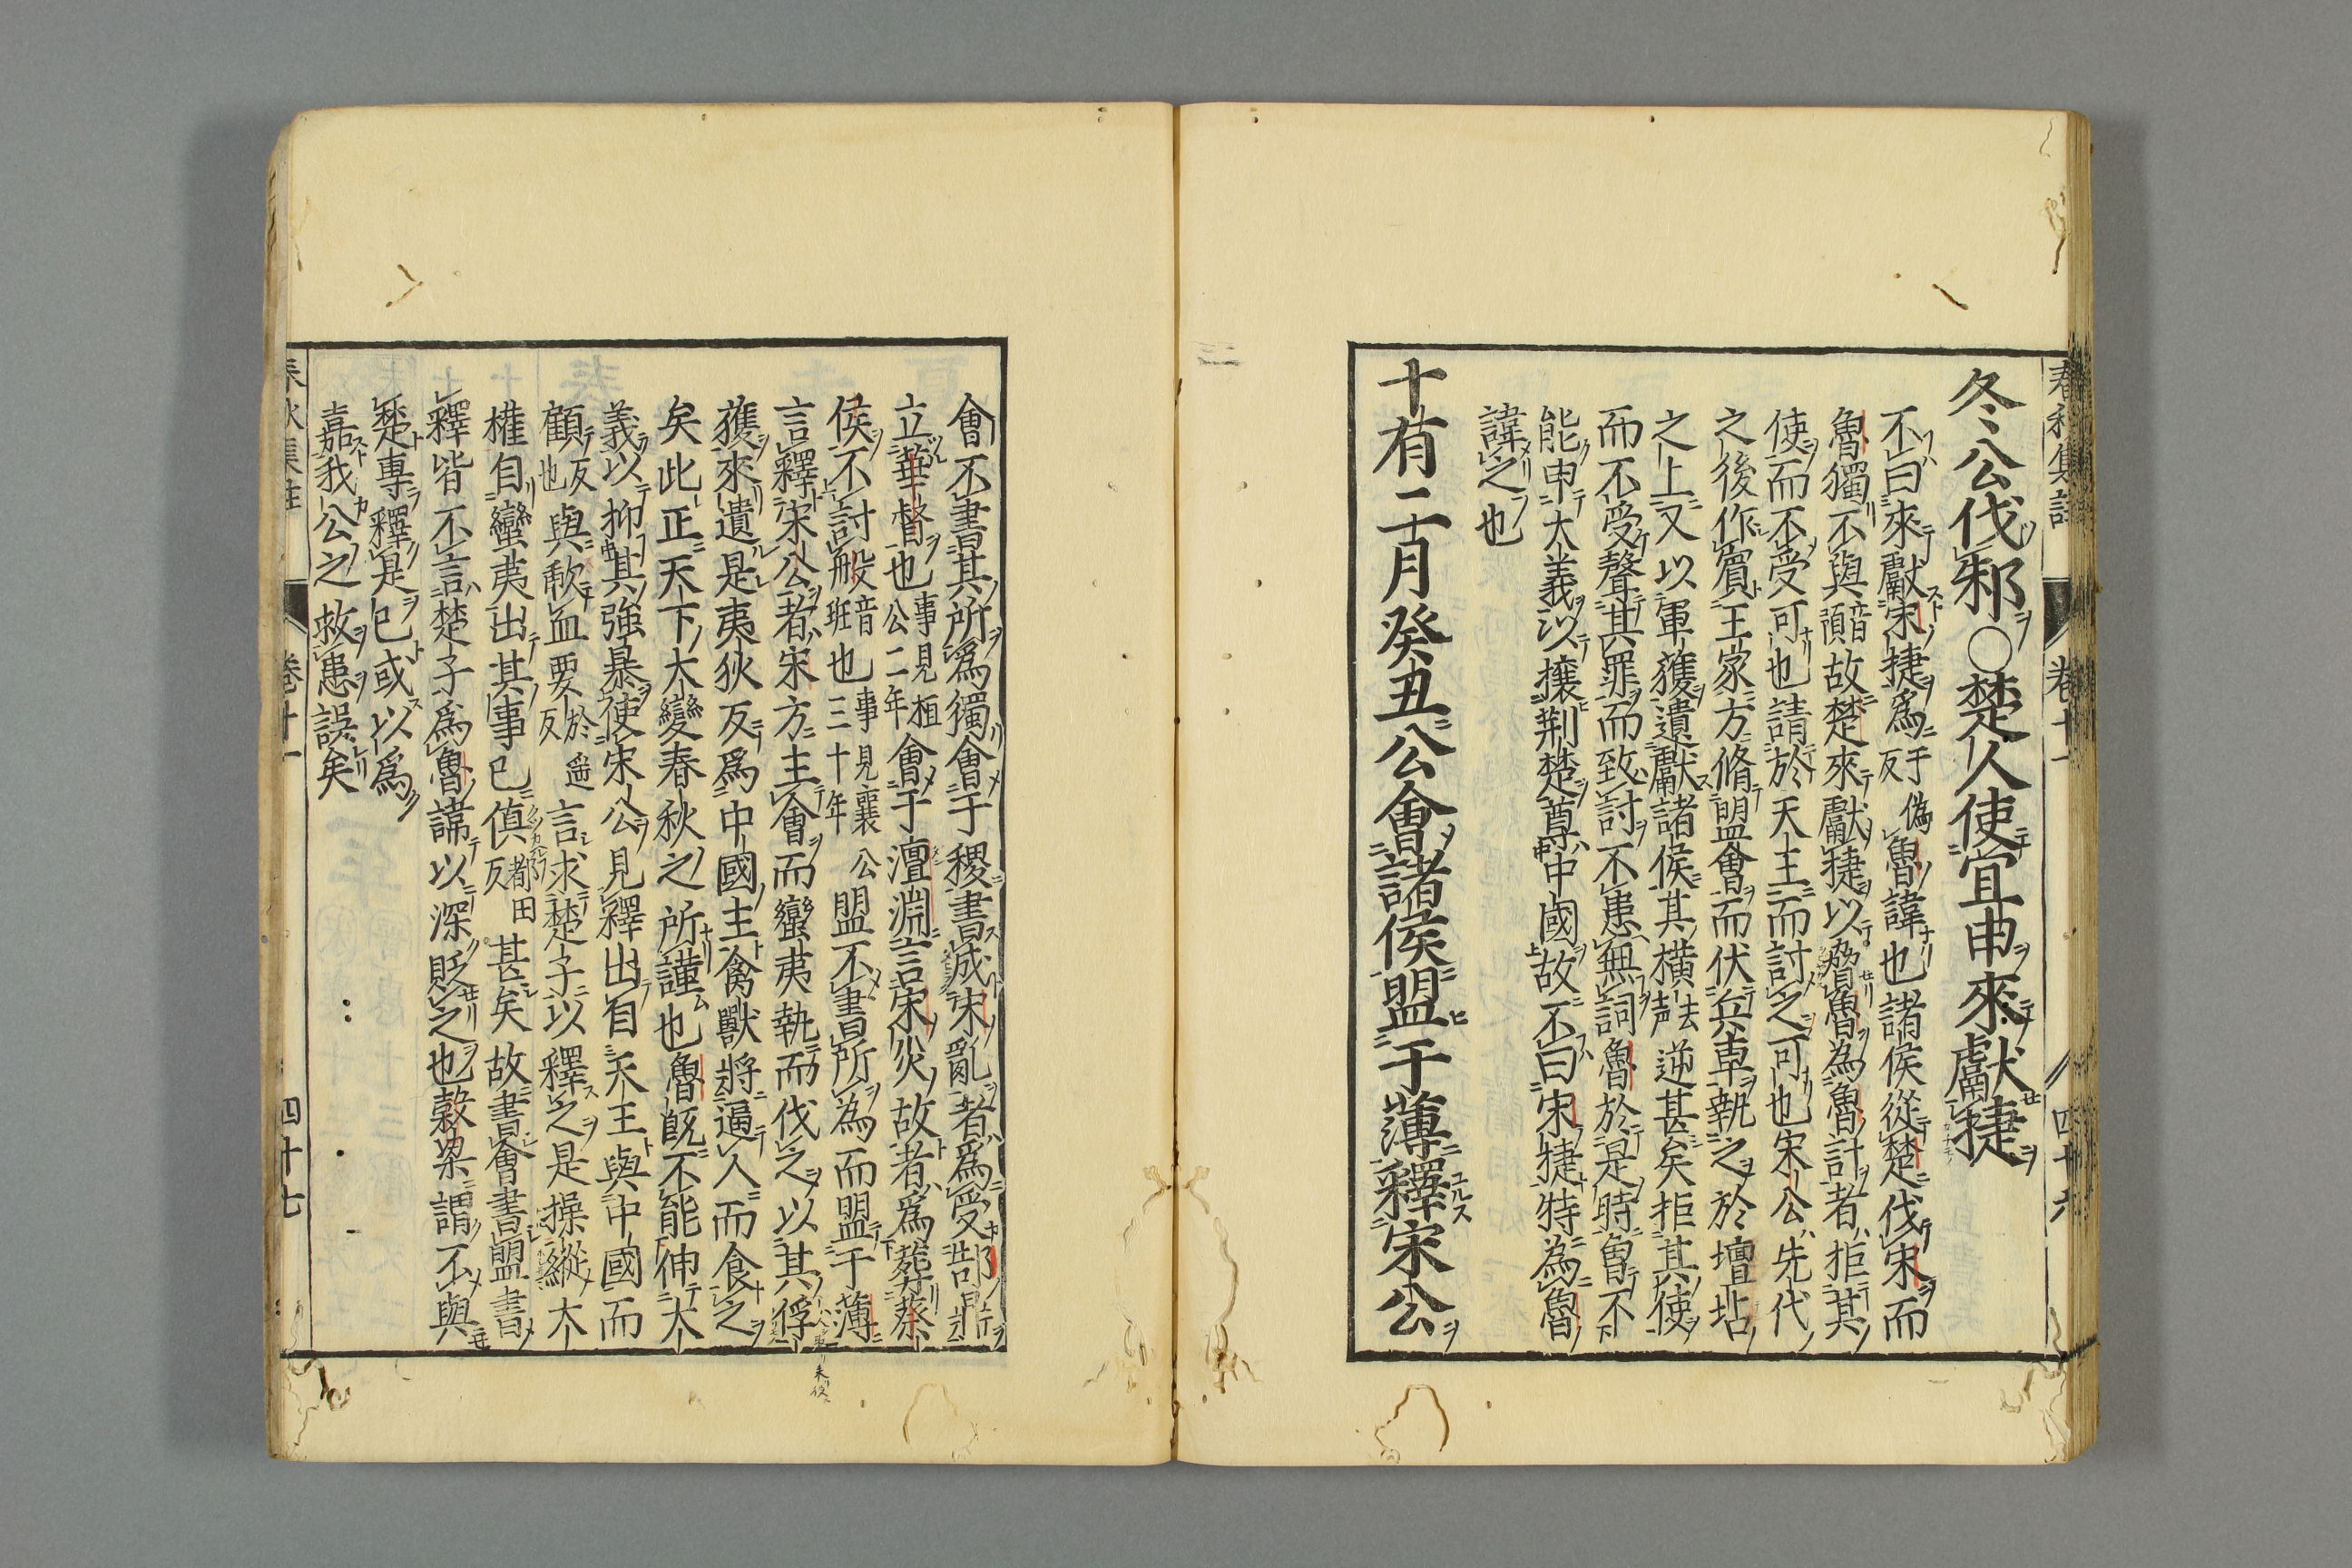 春秋集註 卷十一 四十六
冬公伐邾○楚人使宜申來獻捷
不曰來獻宋捷爲于偽反魯諱也諸侯從楚伐宋而
魯獨不與音預故楚來獻捷以脅魯為魯計者拒其
使而不受可也請於天王而討之可也宋公先代
之後作賓王家方脩盟會而伏兵車執之於壇坫
之上又以軍獲遺獻諸侯其橫去声逆甚矣拒其使
而不受聲其罪而致討不患無詞魯於是時曾不
能申大義以攘荆楚尊中國故不曰宋捷特為魯
諱之也
十有二月癸丑公會諸侯盟于薄釋宋公
會不書其所爲獨會于稷書成宋亂者爲受郜鼎
立華督也事見桓公二年會于澶淵言宋災故者爲葬蔡
侯不討般音班也事見襄公三十年盟不書所為而盟于薄
言釋宋公者宋方主會而蠻夷執而伐之以其俘
獲來遺是夷狄反爲中國主禽獸將逼人而食之
矣此正天下大變春秋之所謹也魯既不能伸大
義以抑其強暴使宋公見釋出自天王與中國而
顧反也與歃血要於遥反言求楚子以釋之是操縱大
權自蠻夷出其事已傎都田反甚矣故書會書盟書
釋皆不言楚子爲魯諱以深貶之也穀梁謂不與
楚專釋是已或以為
嘉我公之救患誤矣
春秋集註 卷十一 四十七